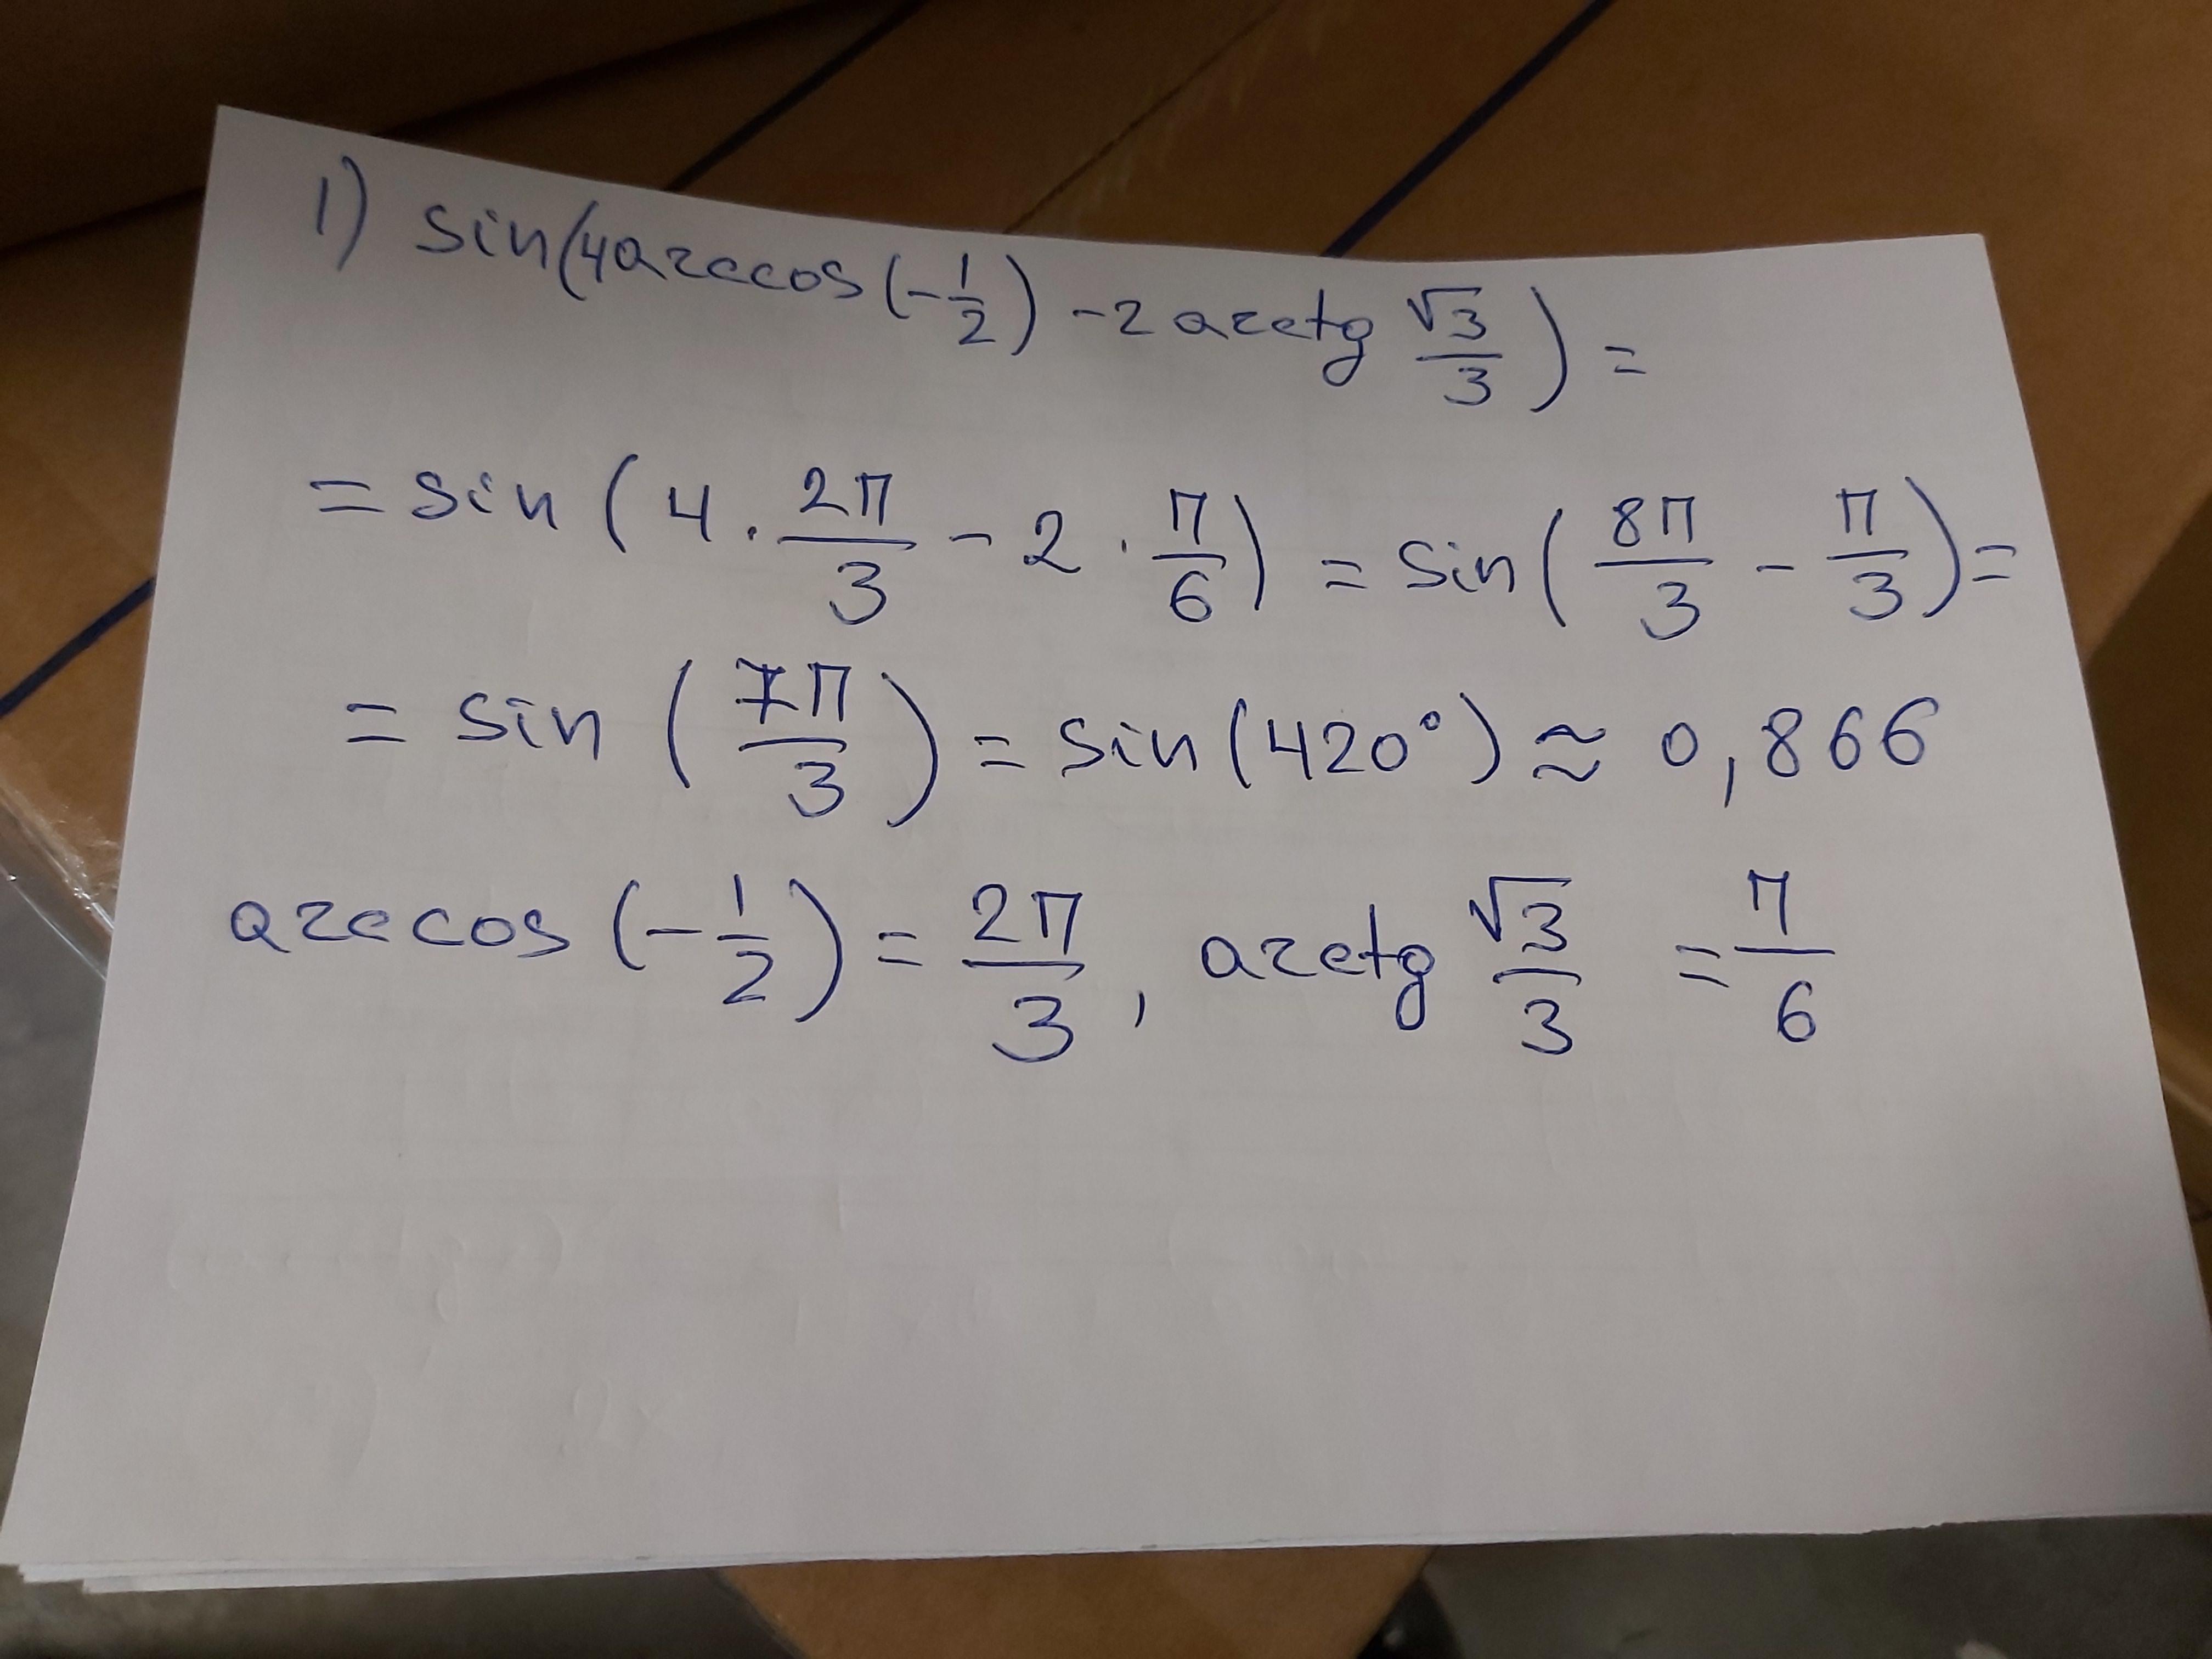 1) sin(4arccos(-1/2) - 2arctg √3/3) =
= sin(4 · 2π/3 - 2 · π/6) = sin(8π/3 - π/3) =
= sin(7π/3) = sin(420°) ≈ 0,866
arccos(-1/2) = 2π/3, arctg √3/3 = π/6